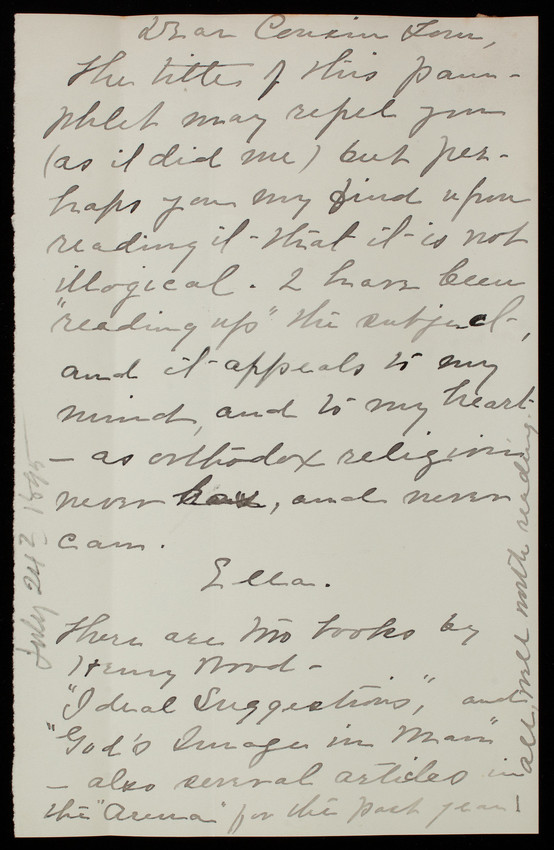 Dear Cousin Tom,
The title of this pam-
phlet may repel you
(as it did me) but per-
haps you my find upon
reading it - that it - is not
illogical. I have been
"reading up" the subject -,
and it - appeals to my
mind, and to my heart -
- as orthodox religion
never has, and never
can.
Ella.
There are two books by
Henry Wood -
"Ideal Suggestions," and
"God's Image in Man"
- also several articles in
the "Arena" for the past year -
all well worth reading.
July 24th 1895